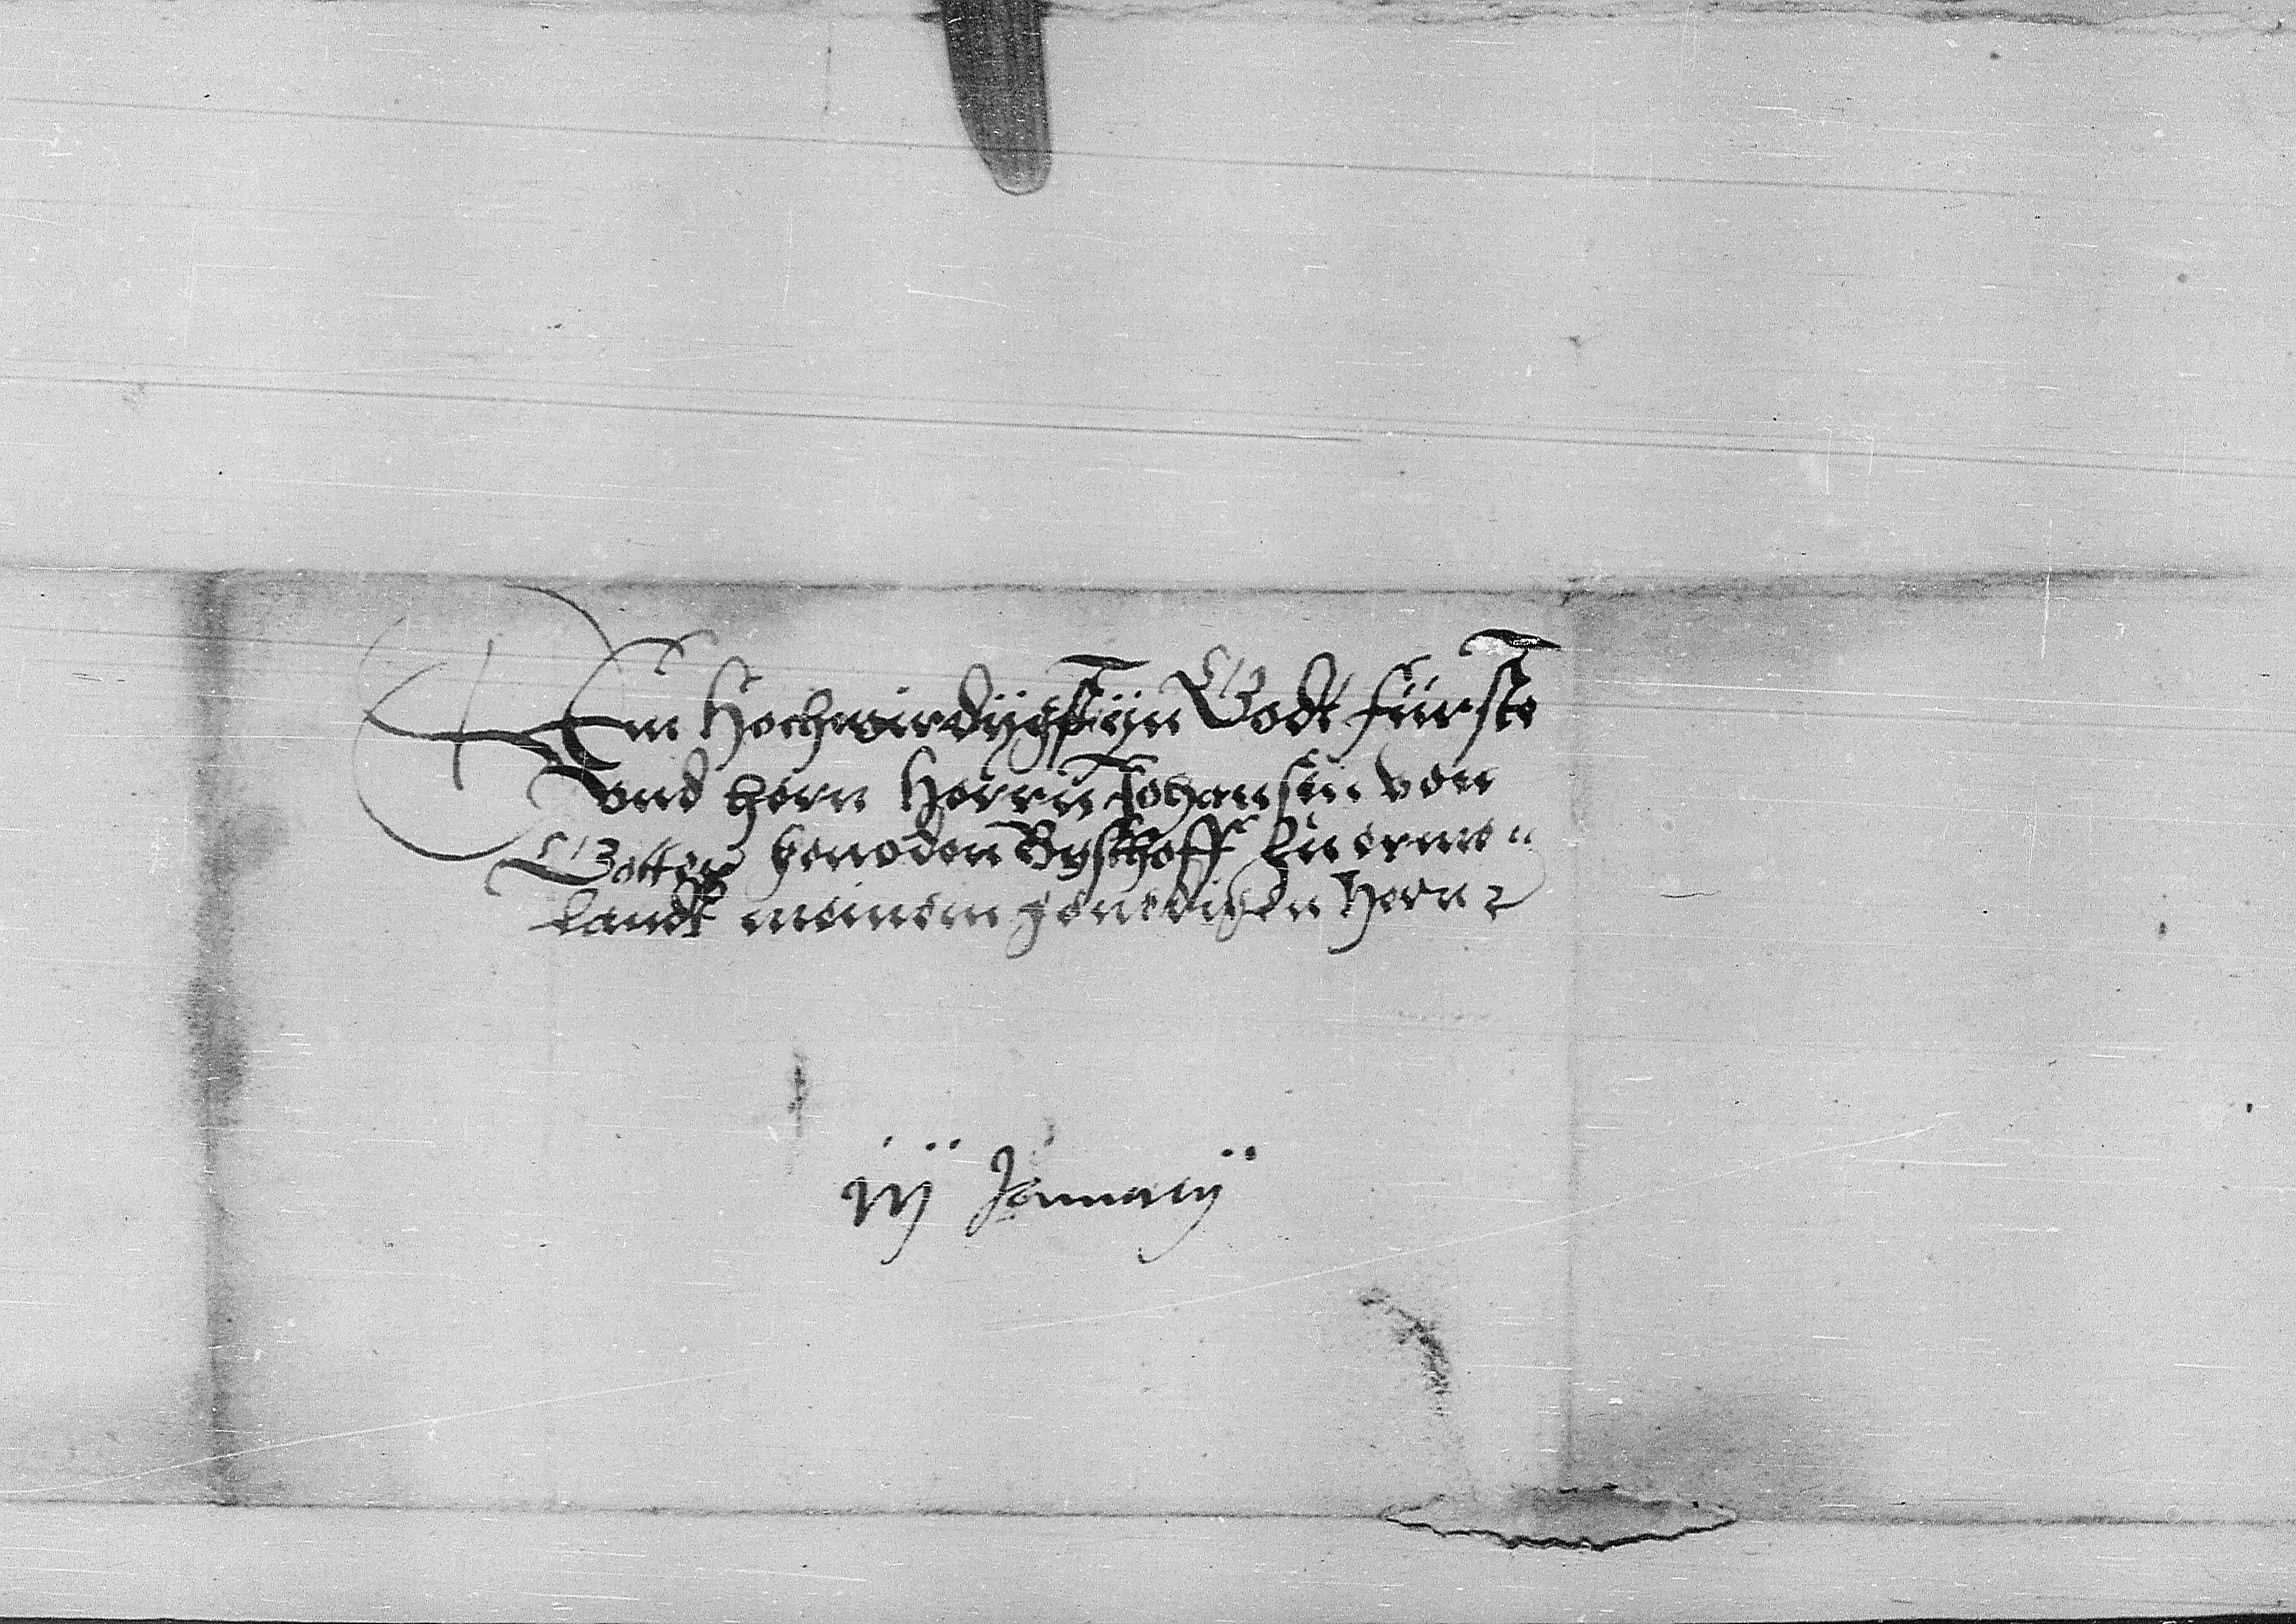 Dem Hochwirdygst yn Godt fürste
vnd hern Herrn Johansen von
Gottes genoden Byschoff Zu erme"
landt meinem genedigen Hern
iij Januarij